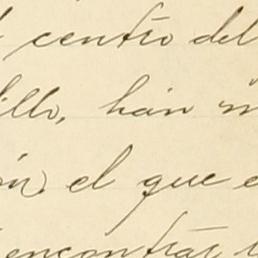 centro del
illo, hán
ón, el que
encontrar